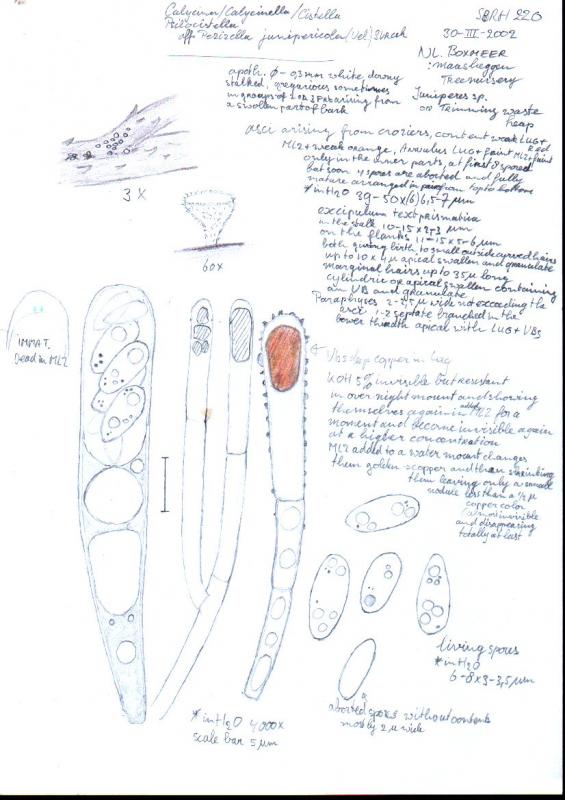 Calycina/Calycinella/Cistella
Psilocistella
aff. Pezizella junipericola (Vel) Svrcek
SBRH 220
30-III-2002
NL. Boxmeer
: maasheggen
Treenursery
Juniperes sp.
on Trimming waste
heap
apoth. Ø - 0,3 mm white, downy
stalked, gregarious sometimes
in groups of 2 or 3 arising from
a swollen part of bark
asci arising from croziers, content weak LUG+
MLZ+ weak orange, Annulus LUG+ faint red MLZ+ faint
only in the inner parts, at first 8 spored
but soon 4 spores are aborted and fully
mature arranged in from top to bottom
*in H2O 39-50x(6)6,5-7 µm
excipulum text prismatica
in the stalk 10-15x2-3 µm
on the flanks 11-15x5-6 µm
both giving birth to small outside curved hairs
up to 10x4 µm apical swollen and granulate
marginal hairs up to 35 µm long
cylindric or apical swollen containing
an VB and granulate
Paraphyses 2-2,5 µm wide not exceeding the
asci 1-2 septate branched in the
lower apical with LUG+ VBs
3x
60x
IMMAT.
Dead in MLZ
VBs deep copper in Lug
KOH 5% invisible but resistant
in over night mount and showing
themselves again in added MLZ for a
moment and become invisible again
at a higher concentration
MLZ added to a water mount changes
them golden-copper and than shrinking
them leaving only a small
nodule less than a ½ µ
copper color
almost invisible
and disappearing
totally at last
living spores
*in H2O
6-8x3-3,5 µm
aborted spores without contents
mostly 2 µ wide
*in H2O 4000x
scale bar 5 µm